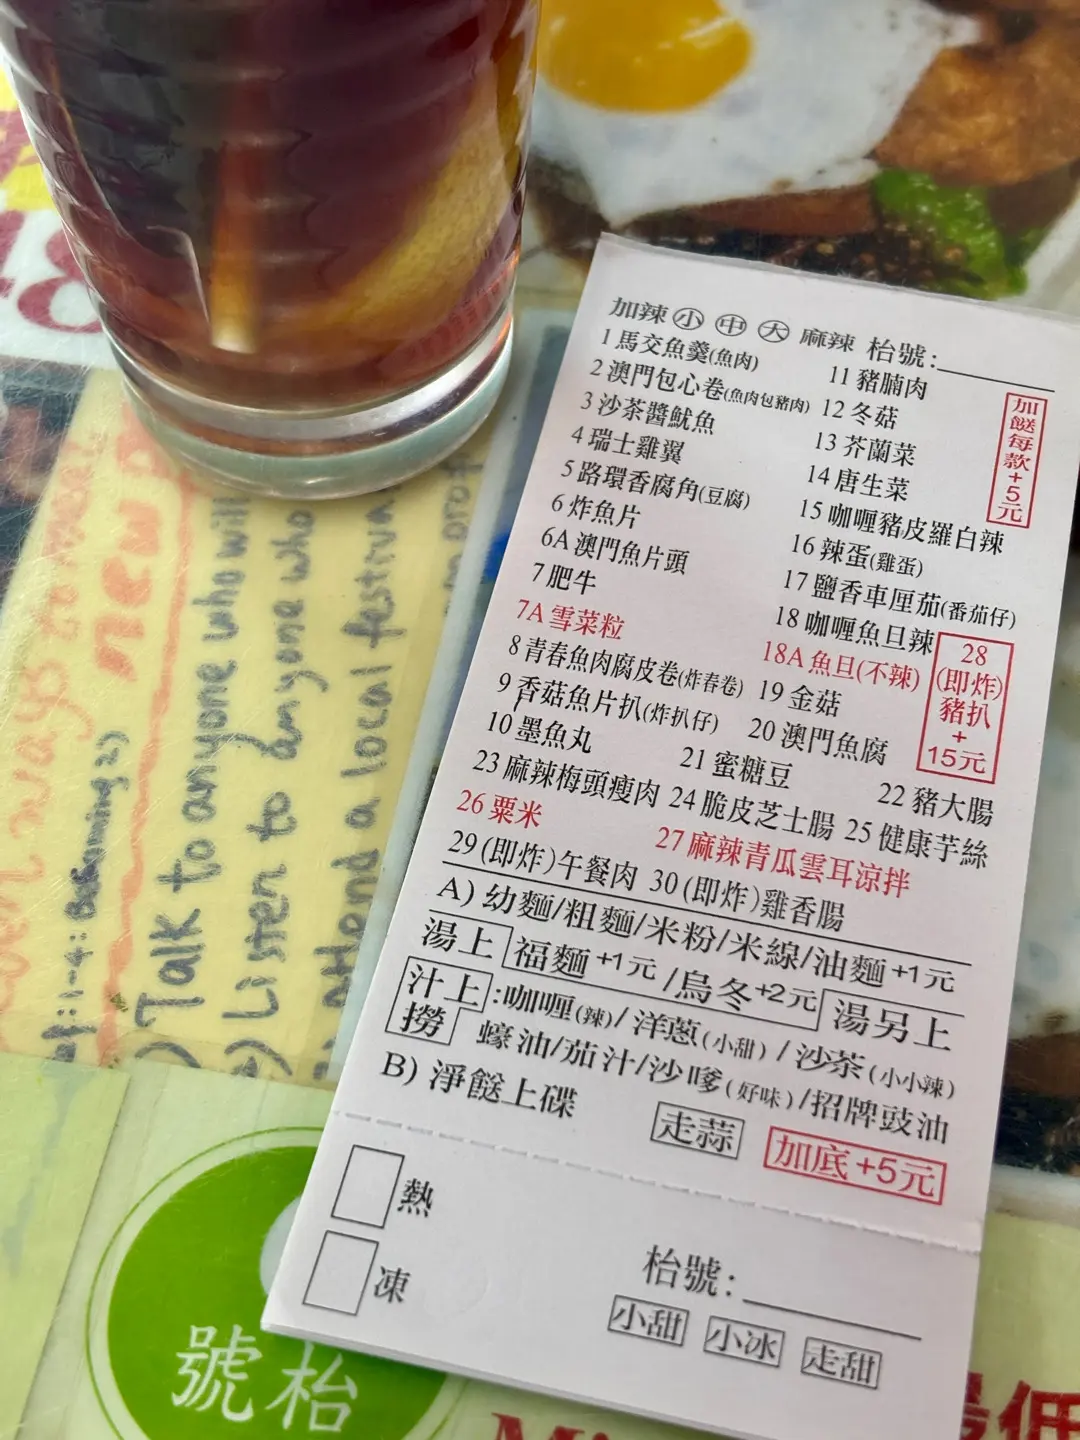 加辣 小 中 大 麻辣 枱號:
1 馬交魚羹(魚肉)
2 澳門包心卷(魚肉包豬肉)
3 沙茶醬魷魚
4 瑞士雞翼
5 路環香腐角(豆腐)
6 炸魚片
6A 澳門魚片頭
7 肥牛
7A 雪菜粒
8 青春魚肉腐皮卷(炸春卷)
9 香菇魚片扒(炸扒仔)
10 墨魚丸
11 豬腩肉
12 冬菇
13 芥蘭菜
14 唐生菜
15 咖喱豬皮羅白辣
16 辣蛋(雞蛋)
17 鹽香車厘茄(番茄仔)
18 咖喱魚旦辣
18A 魚旦(不辣)
19 金菇
20 澳門魚腐
21 蜜糖豆
22 豬大腸
加餸每款+5元
28
(即炸)
豬扒
+
15元
23 麻辣梅頭瘦肉 24 脆皮芝士腸 25 健康芋絲
26 粟米 27 麻辣青瓜雲耳涼拌
29 (即炸)午餐肉 30 (即炸)雞香腸
A) 幼麵/粗麵/米粉/米線/油麵 +1元
湯上 福麵 +1元 /烏冬+2元 湯另上
汁上 :咖喱(辣)/ 洋蔥(小甜) / 沙茶(小小辣)
撈 蠔油/茄汁/沙嗲(好味)/招牌豉油
B) 淨餸上碟 走蒜 加底 +5元
熱
凍
枱號:
小甜 小冰 走甜
Talk to anyone who will
Listen to anyone who
a local festival
new
號枱